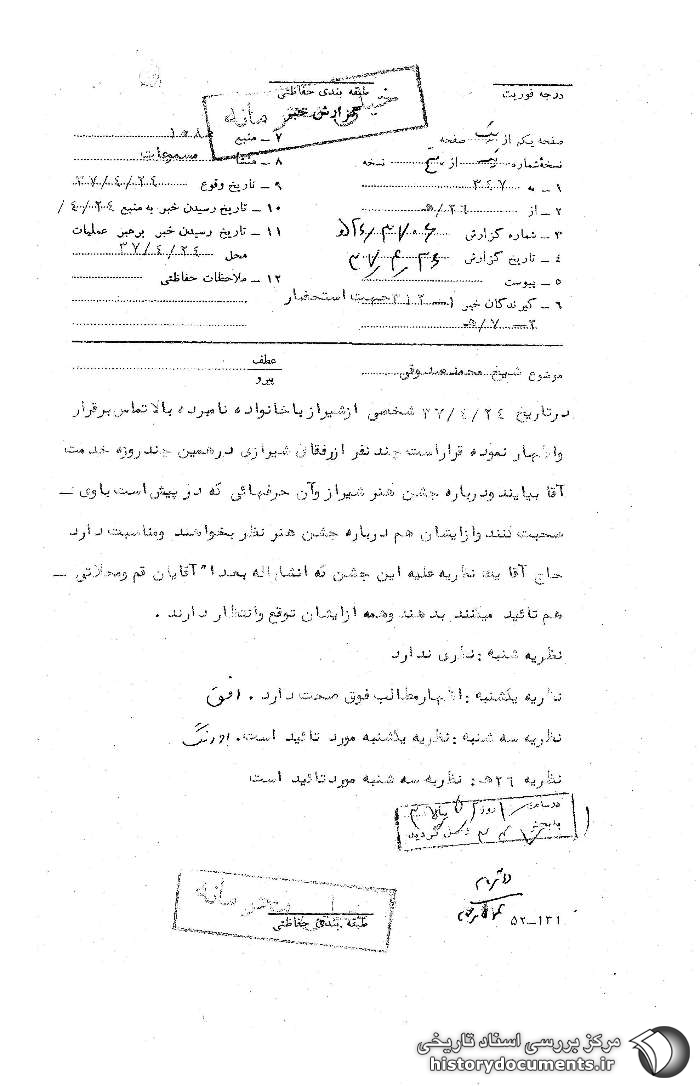 درجه فوریت
طبقه بندی حفاظتی
خیلی محرمانه
گزارش خبر
صفحه یک از یک صفحه
نسخه شماره از نسخه
۱ – به ۳۴۷
۲ – از ۲۶/ه
۳ – شماره گزارش
۴ – تاریخ گزارش ۳۷/۴/۲۶
۵ – پیوست
۶ – گیرندگان خبر ۱– ۳۱۲ جهت استحضار
۲– ۷/ه
۷ – منبع
۸ – منشاء مسموعات
۹ – تاریخ وقوع ۳۷/۴/۲۴
۱۰ – تاریخ رسیدن خبر به منبع
۱۱ – تاریخ رسیدن خبر برهبر عملیات
محل ۳۷/۴/۲۴
۱۲ – ملاحظات حفاظتی
موضوع شیخ محمد صدوقی
عطف
پیرو
درتاریخ ۳۷/۴/۲۴ شخصی ازشیراز باخانواده نامبرده بالا تماس برقرار
واظهار نموده قراراست چند نفر ازرفقای شیرازی درهمین چندروزه خدمت
آقا بیایند ودرباره جشن هنر شیراز وآن حرفهائی که در پیش است باوی –
صحبت کنند وازایشان هم درباره جشن هنر نظر بخواهند ومناسبت دارد
حاج آقا یک نظریه علیه این جشن که انشااله بعدا" آقایان قم ومحلاتی –
هم تائید میکنند بدهند وهمه ازایشان توقع وانتظار دارند .
نظریه شنبه : نظری ندارد
نظریه یکشنبه : اظهارمطالب فوق صحت دارد . افق
نظریه سه شنبه : نظریه یکشنبه مورد تائید است. اورنگ
نظریه ۲۶ه : نظریه سه شنبه موردتائید است
درساعت روز
به بخش گردید
۵۲–۱۳۱
خیلی محرمانه
طبقه بندی حفاظتی
مرکز بررسی اسناد تاریخی
historydocuments.ir